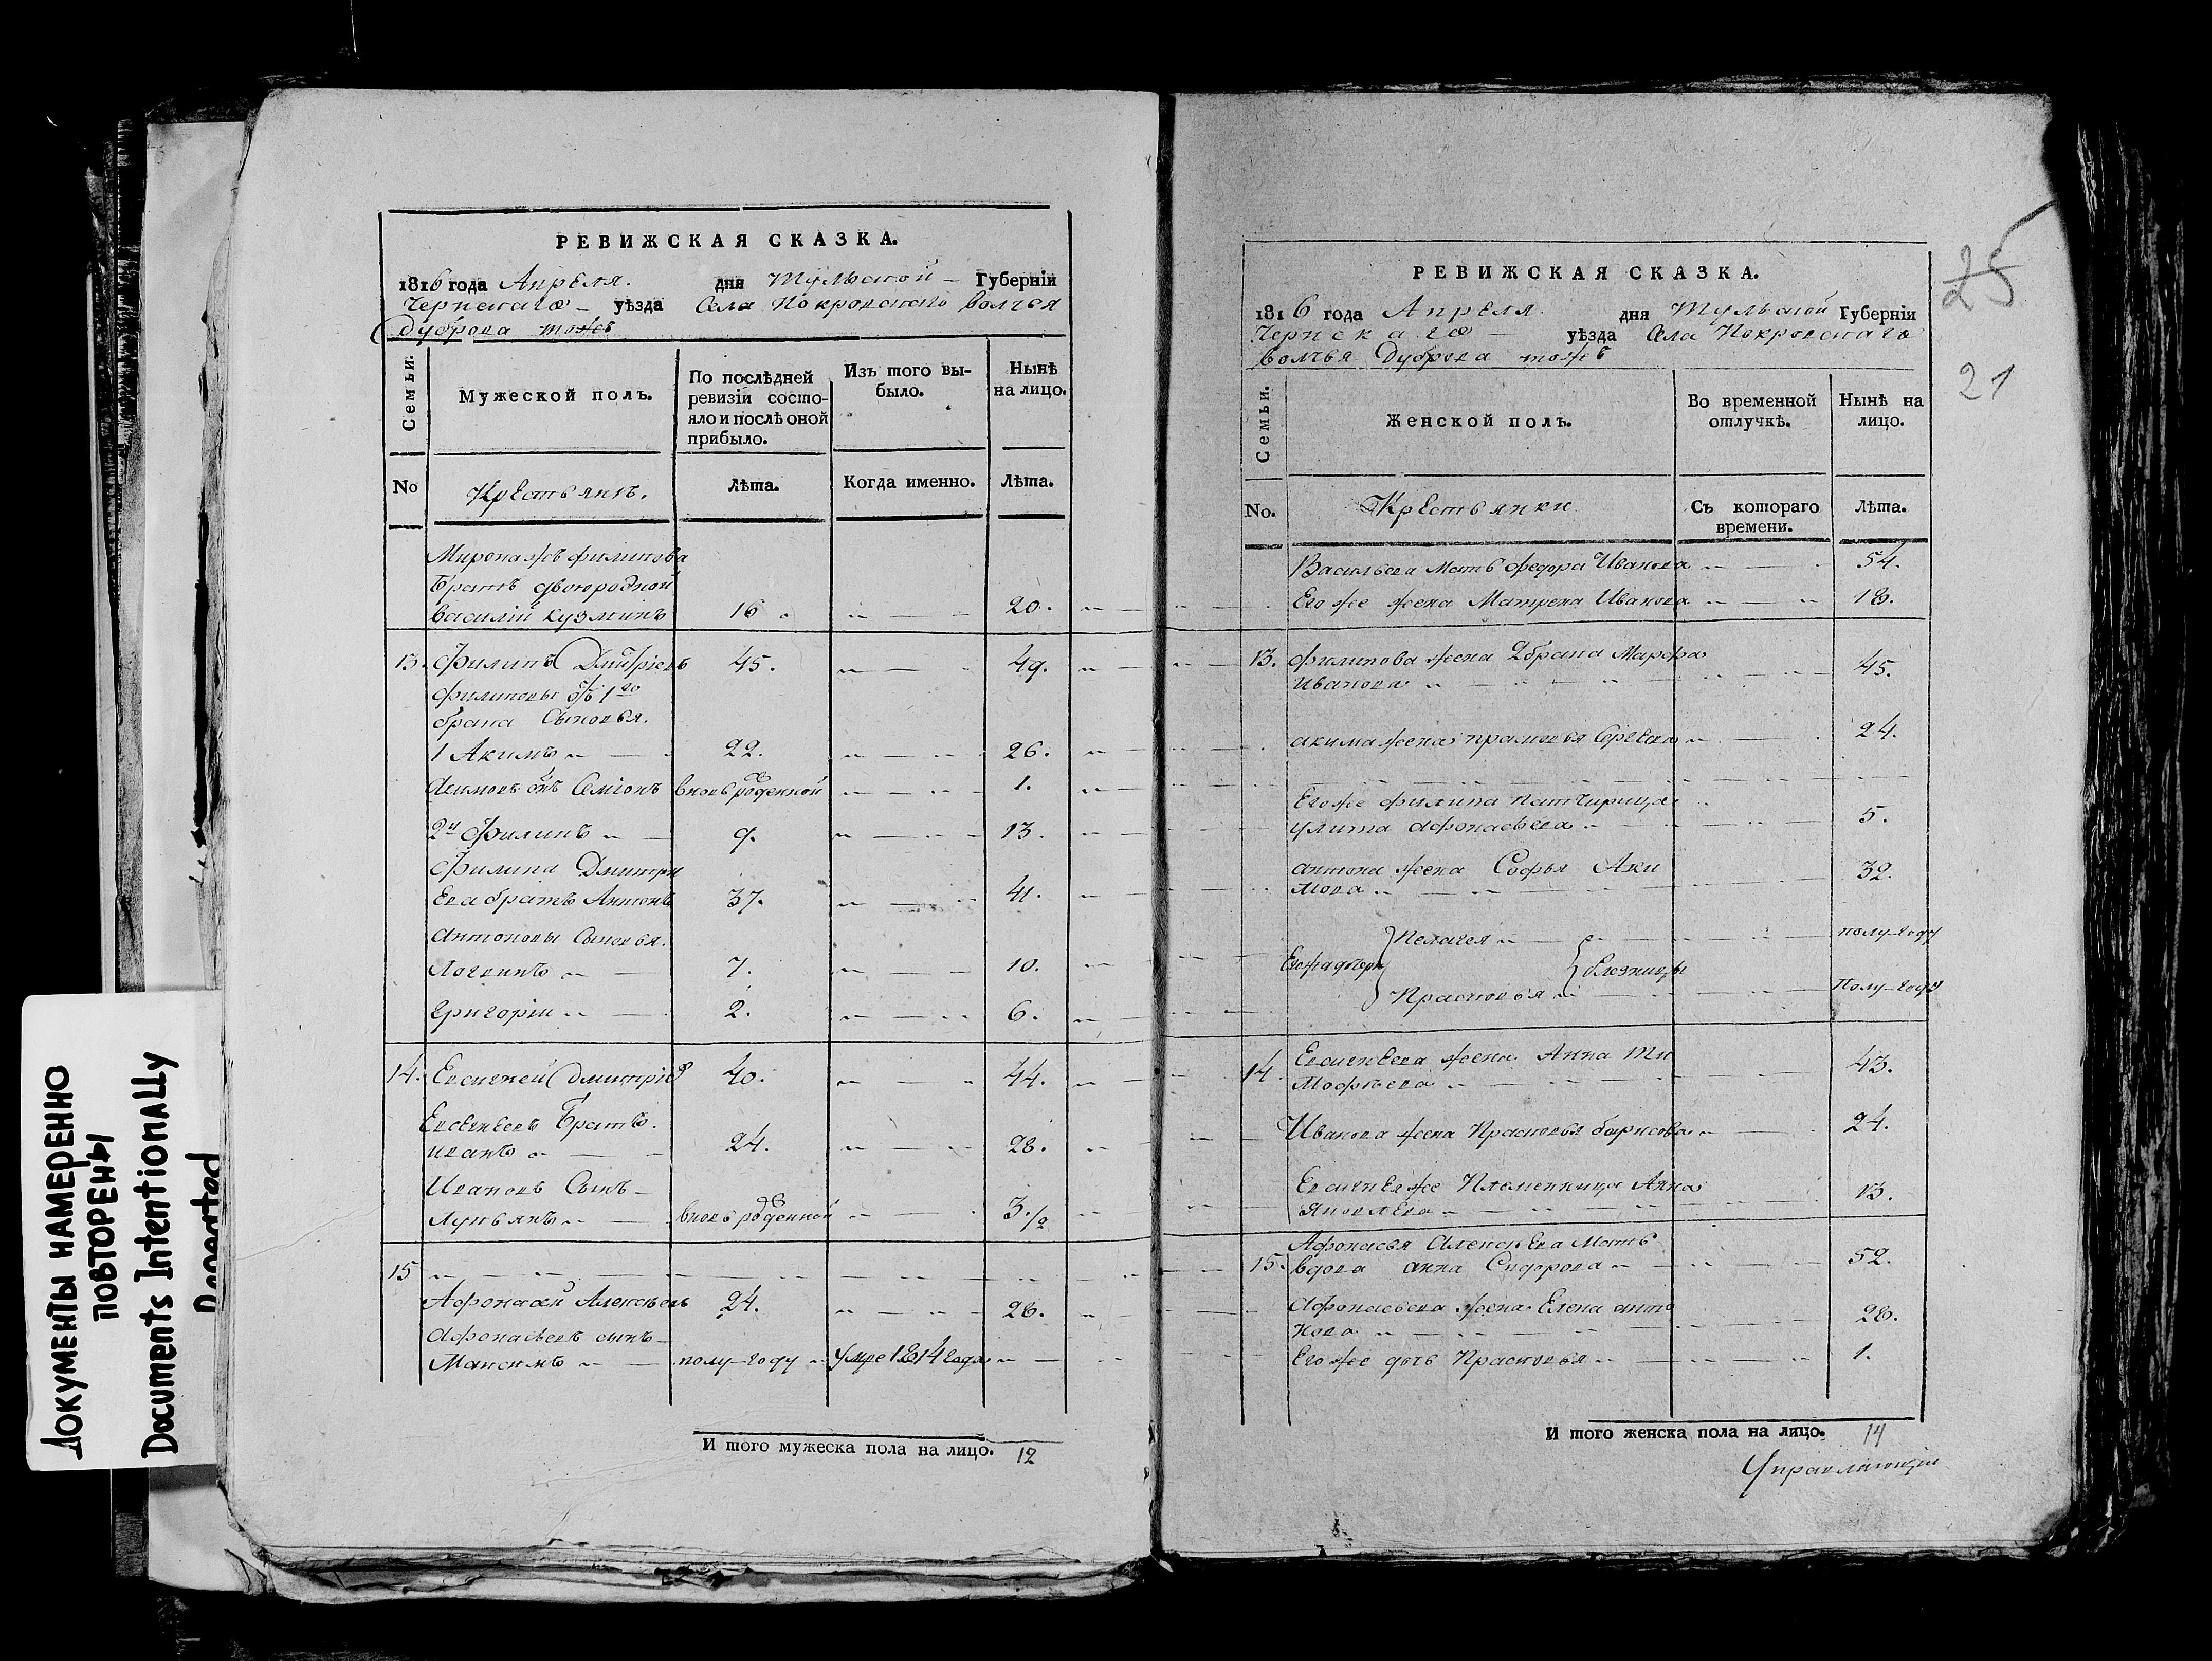 Документы намеренно
повторены
Documents Intentionally
Repeated
РЕВИЖСКАЯ СКАЗКА.
1816 года Апреля. дня Тульской Губерніи
Чернскаго уѣзда Села Покровскаго Волчья
Дуброва тожъ
Семьи.
Мужеской полъ.
По послѣдней
ревизіи состо-
яло и послѣ оной
прибыло.
Изъ того вы-
было.
Нынѣ
на лицо.
No
Крестьянъ.
Лѣта.
Когда именно.
Лѣта.
Мирона жъ филипова
Братъ двоюродной
василій кузминъ 16 20.
13. Филипъ Дмитріевъ 45. 49.
Филиповы отъ 1го
брака Сыновья.
1 Акимъ 22. 26.
Акимовъ сынъ Семіонъ вновь рожденной 1.
2й Филипъ 9. 13.
Филипа Дмитри
Ева братъ Антонъ 37. 41.
Антоновы Сыновья.
Логвинъ 7. 10.
Григорій 2. 6.
14. Евсигней Дмитріевъ 40. 44.
Евсигнеевъ Братъ
иванъ 24. 28.
Ивановъ Сынъ
Лукьянъ вновь рожденной 3 1/2
15
Афонасей Алексеевъ 24. 28.
Афонасьевъ сынъ
Максимъ полу-году умре 1814 года
И того мужеска пола на лицо. 12
25
21
РЕВИЖСКАЯ СКАЗКА.
1816 года Апреля. дня Тульской Губерніи
Чернскаго уѣзда Села Покровскаго
Волчья Дуброва тожъ
Семьи.
Женской полъ.
Во временной
отлучкѣ.
Нынѣ на
лицо.
No.
Крестьянки
Съ котораго
времени.
Лѣта.
Васильева Мать федора Иванова 54.
Его же жена Матрена Иванова 18.
13. филипова жена 2 брака Марфа
Иванова 45.
акима жена прасковья 24.
Его же филипа патчирица
улита афонасьева 5.
антона жена Софья Аки
мова 32.
Пелагея полу-году
Его жа дочери близницы
Прасковья Полу-году
14 Евсигнеева жена Анна Ти
мофѣева 43.
Иванова жена Прасковья борисова 24.
Евсигнея же Племенница Анна
Яковлева 13.
Афонасья Алексѣева Мать
15. вдова анна Сидорова 52.
Афонасьева жена Елена анто
нова 28.
Его же дочь Прасковья 1.
И того женска пола на лицо. 14
Управляющій